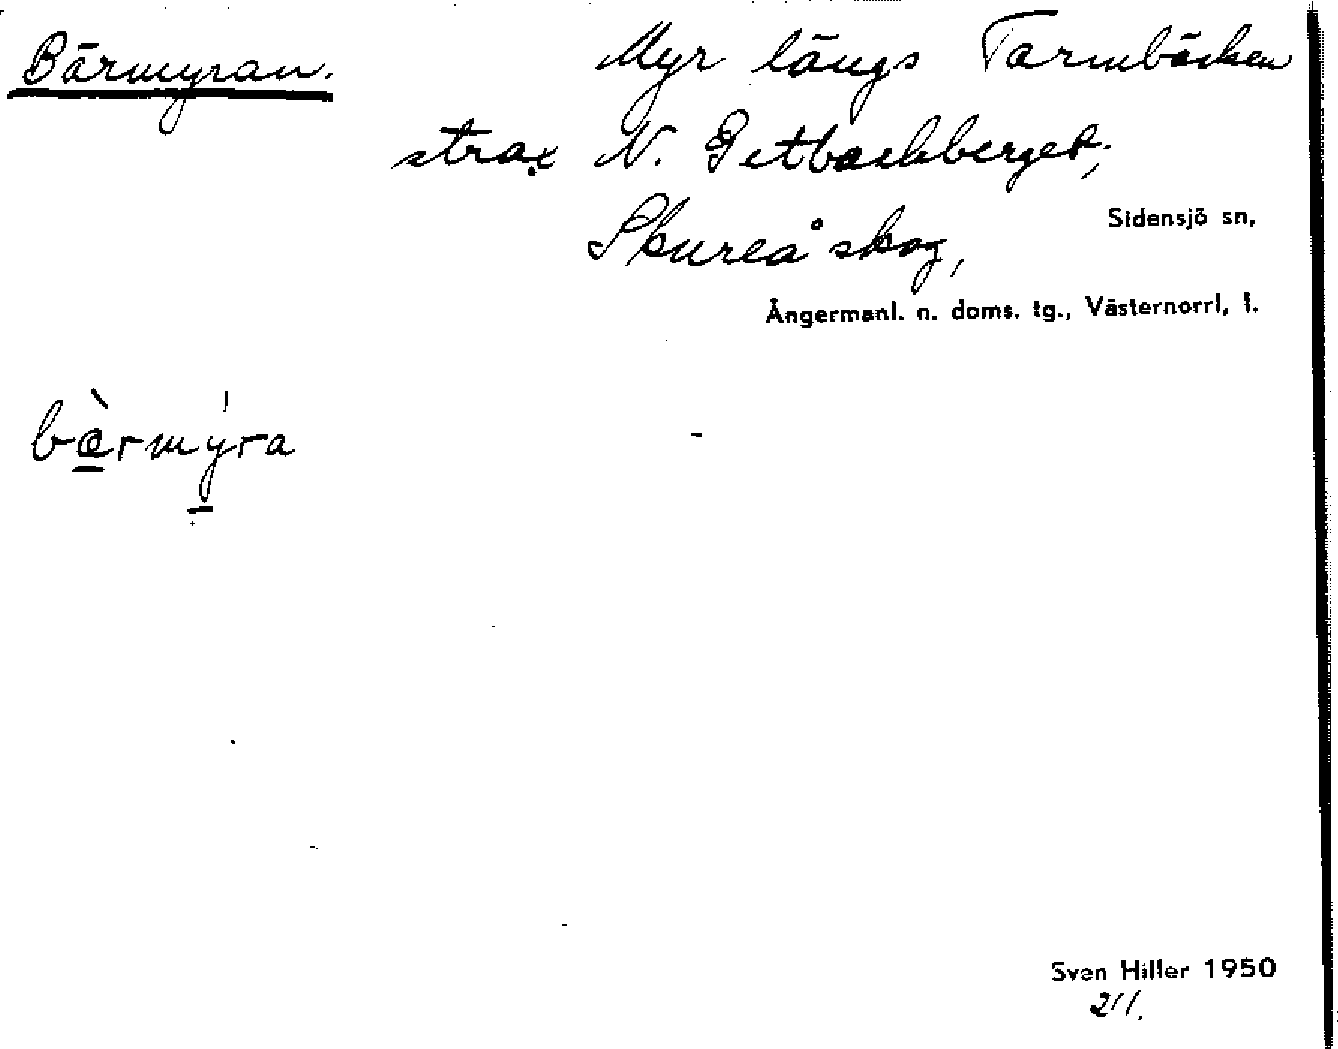 Bärmyran.
Myr längs Tarmbäcken
strax N. Getbackberget,
Skureå skog,
Sidensjö sn,
Ångermanl. n. doms. tg., Västernorrl. l.
bærmyra
Sven Hiller 1950
211.